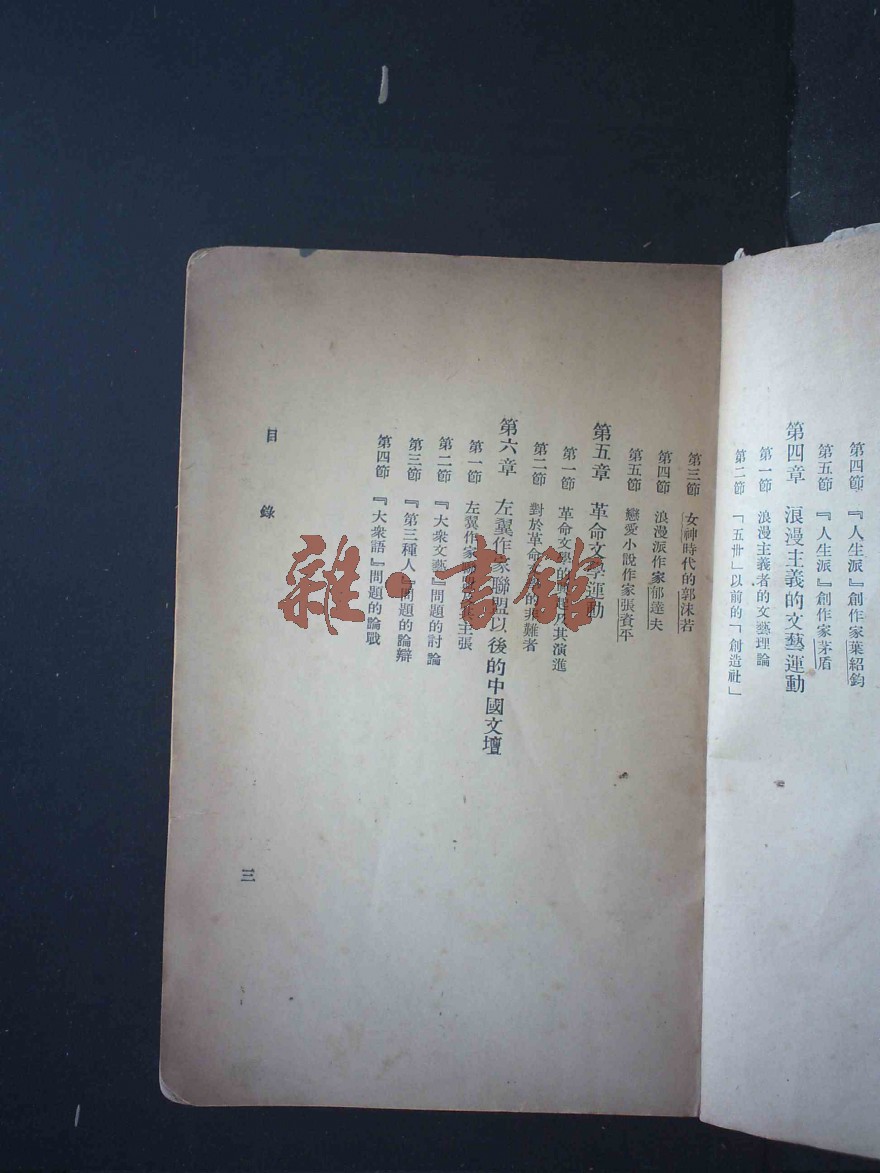 第四節 『人生派』創作家葉紹鈞
第五節 『人生派』創作家茅盾
第四章 浪漫主義的文藝運動
第一節 浪漫主義者的文藝理論
第二節 「五卅」以前的「創造社」
第三節 女神時代的郭沫若
第四節 浪漫派作家郁達夫
第五節 戀愛小說作家張資平
第五章 革命文學運動
第一節 革命文學的興起及其演進
第二節 對於革命文學的非難者
第六章 左翼作家聯盟以後的中國文壇
第一節 左翼作家聯盟及其主張
第二節 『大衆文藝』問題的討論
第三節 『第三種人』問題的論辯
第四節 『大衆語』問題的論戰
目錄
三
雜·書館